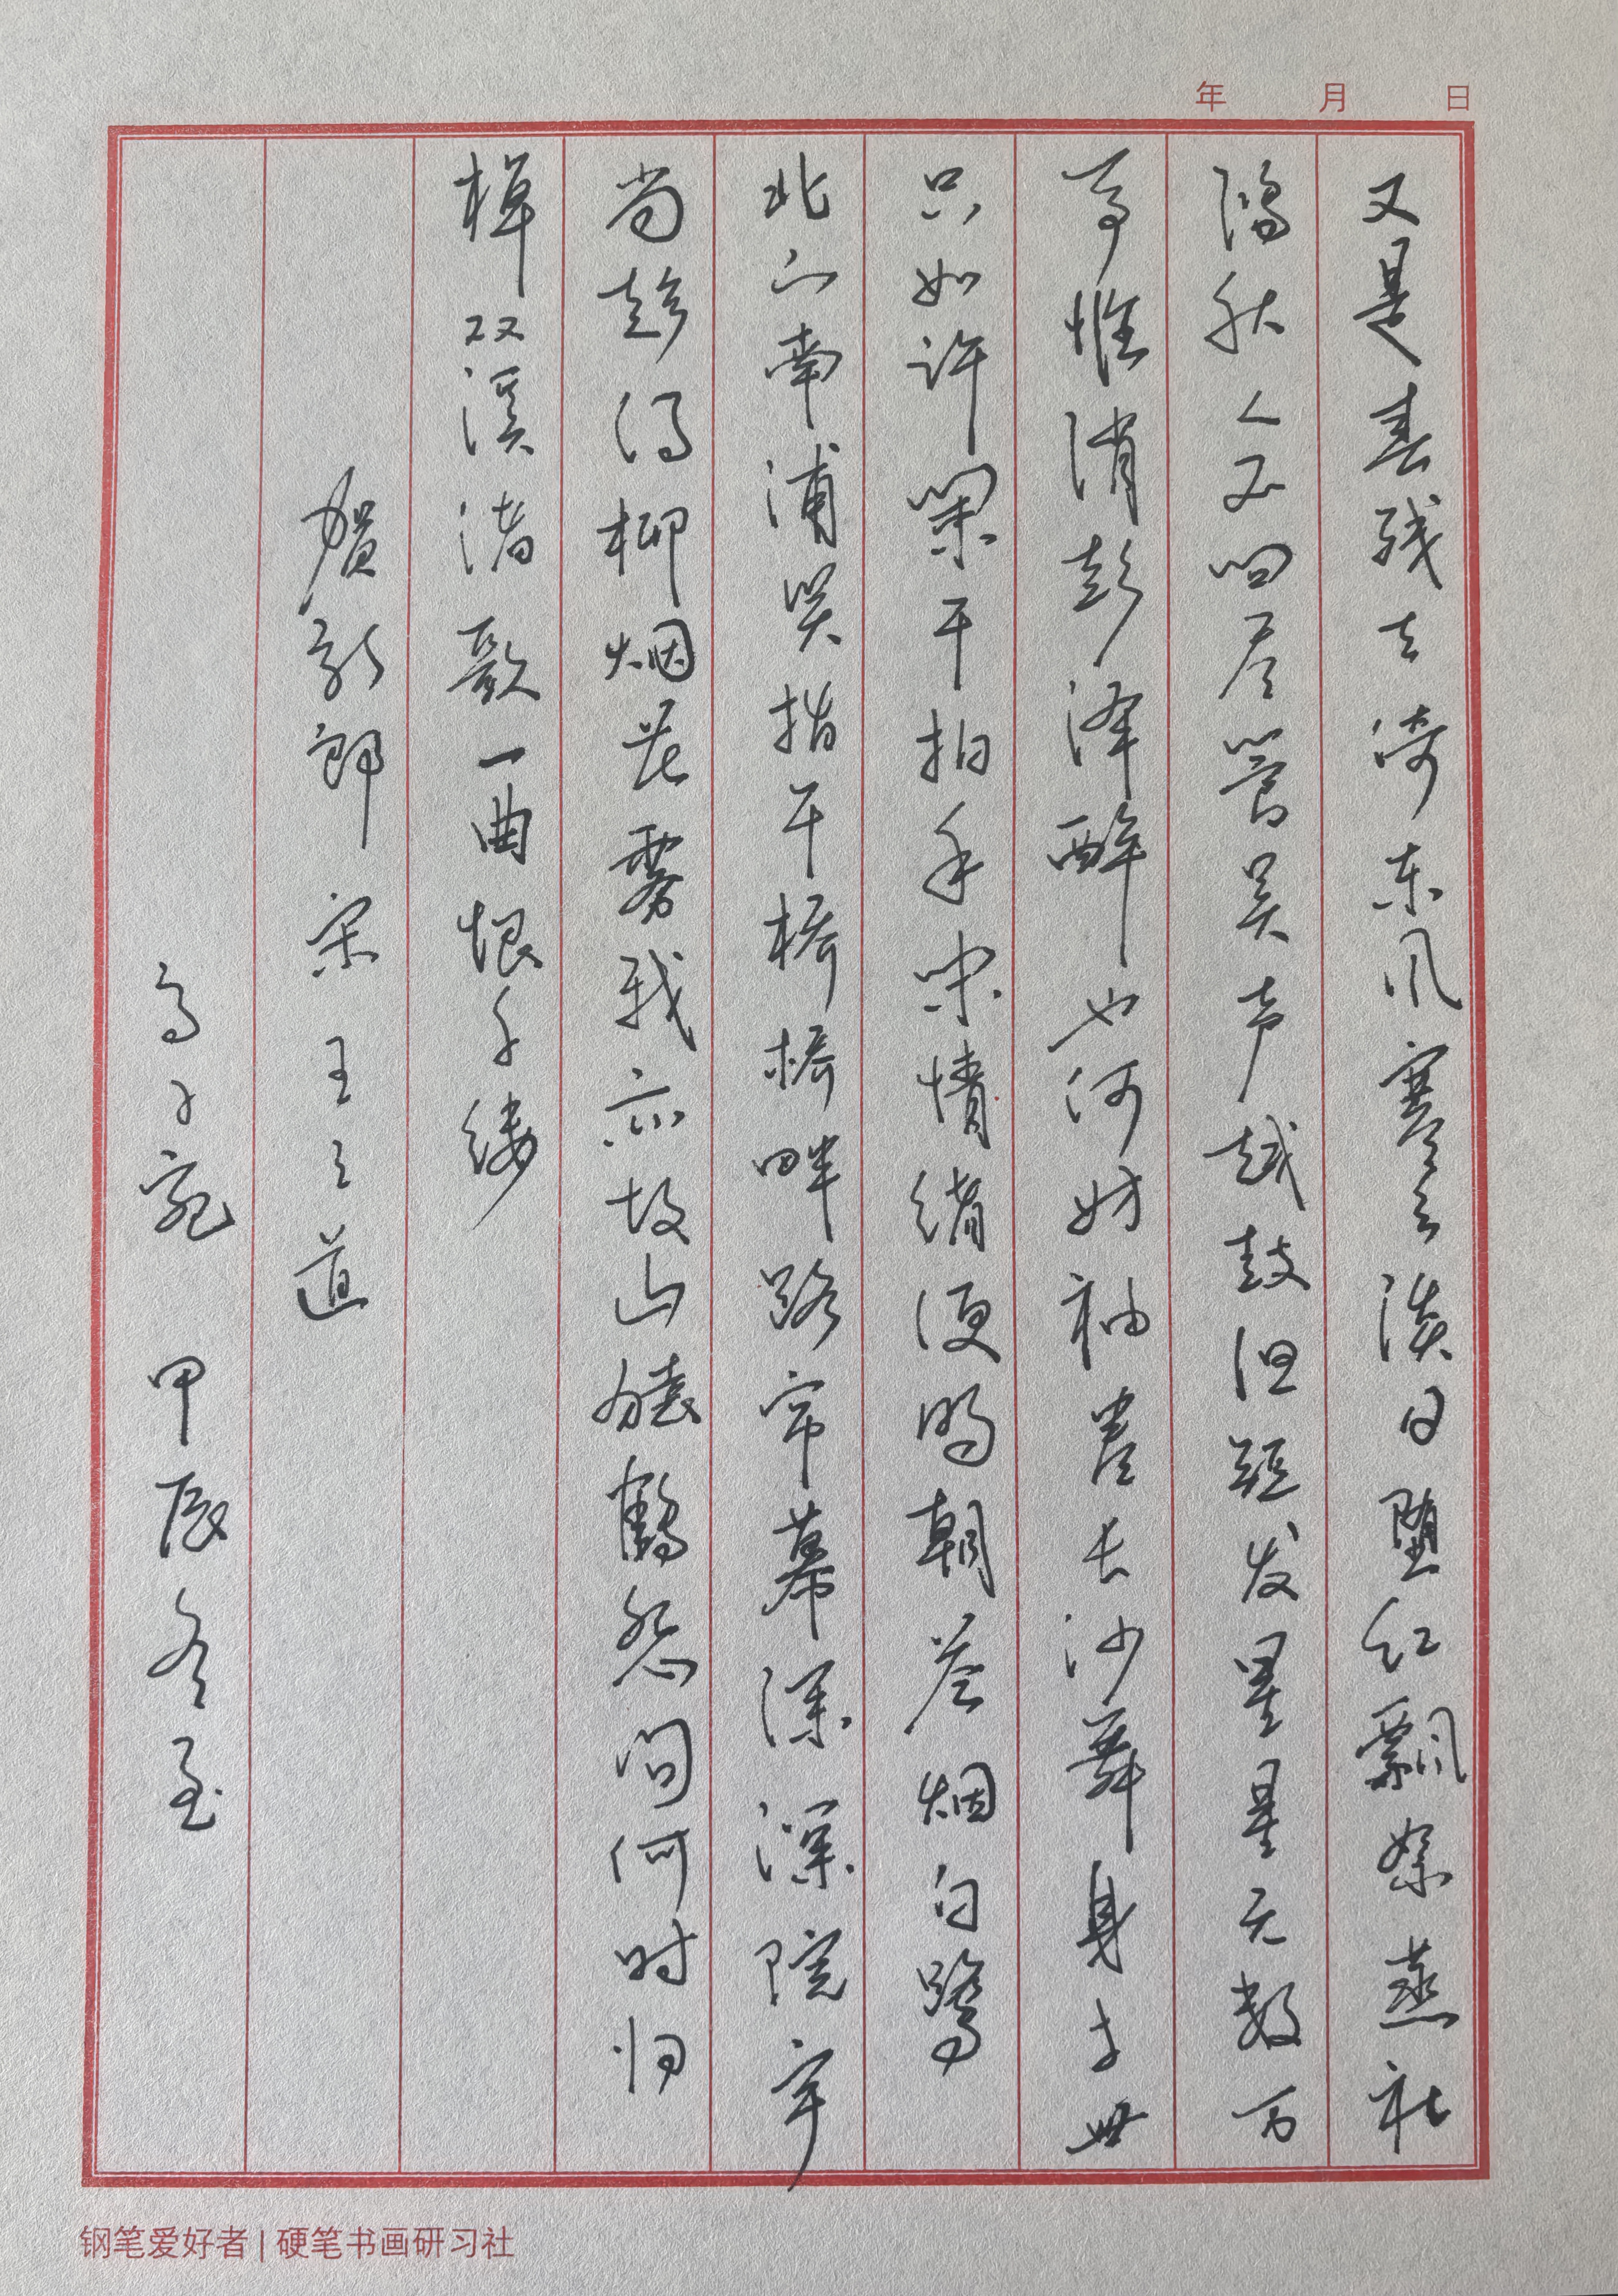 年 月 日
又是春残去倚东风寒云淡日堕红飘絮燕社
鸿秋人不问尽管吴声越鼓但短发星星无数万
事惟消彭泽醉也何妨袖卷长沙舞身与世
只如许阑干拍手闲情绪便明朝苍烟白鹭
北山南浦笑指午桥桥畔路帘幕深深院宇
尚趁得柳烟花雾我亦故山猿鹤怨问何时归
棹双溪渚歌一曲恨千缕
贺新郎 宋 王之道
甲辰冬至
钢笔爱好者 | 硬笔书画研习社